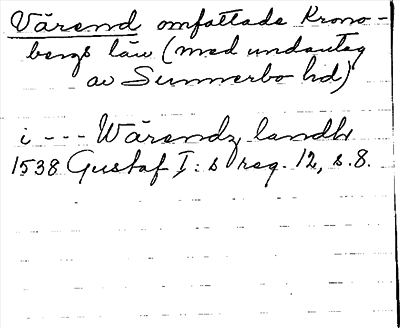 Värend omfattade Krono-
bergs län (med undantag
av Sunnerbo hd)
i --- Wärendz landh
1538 Gustaf I:s reg. 12, s. 8.